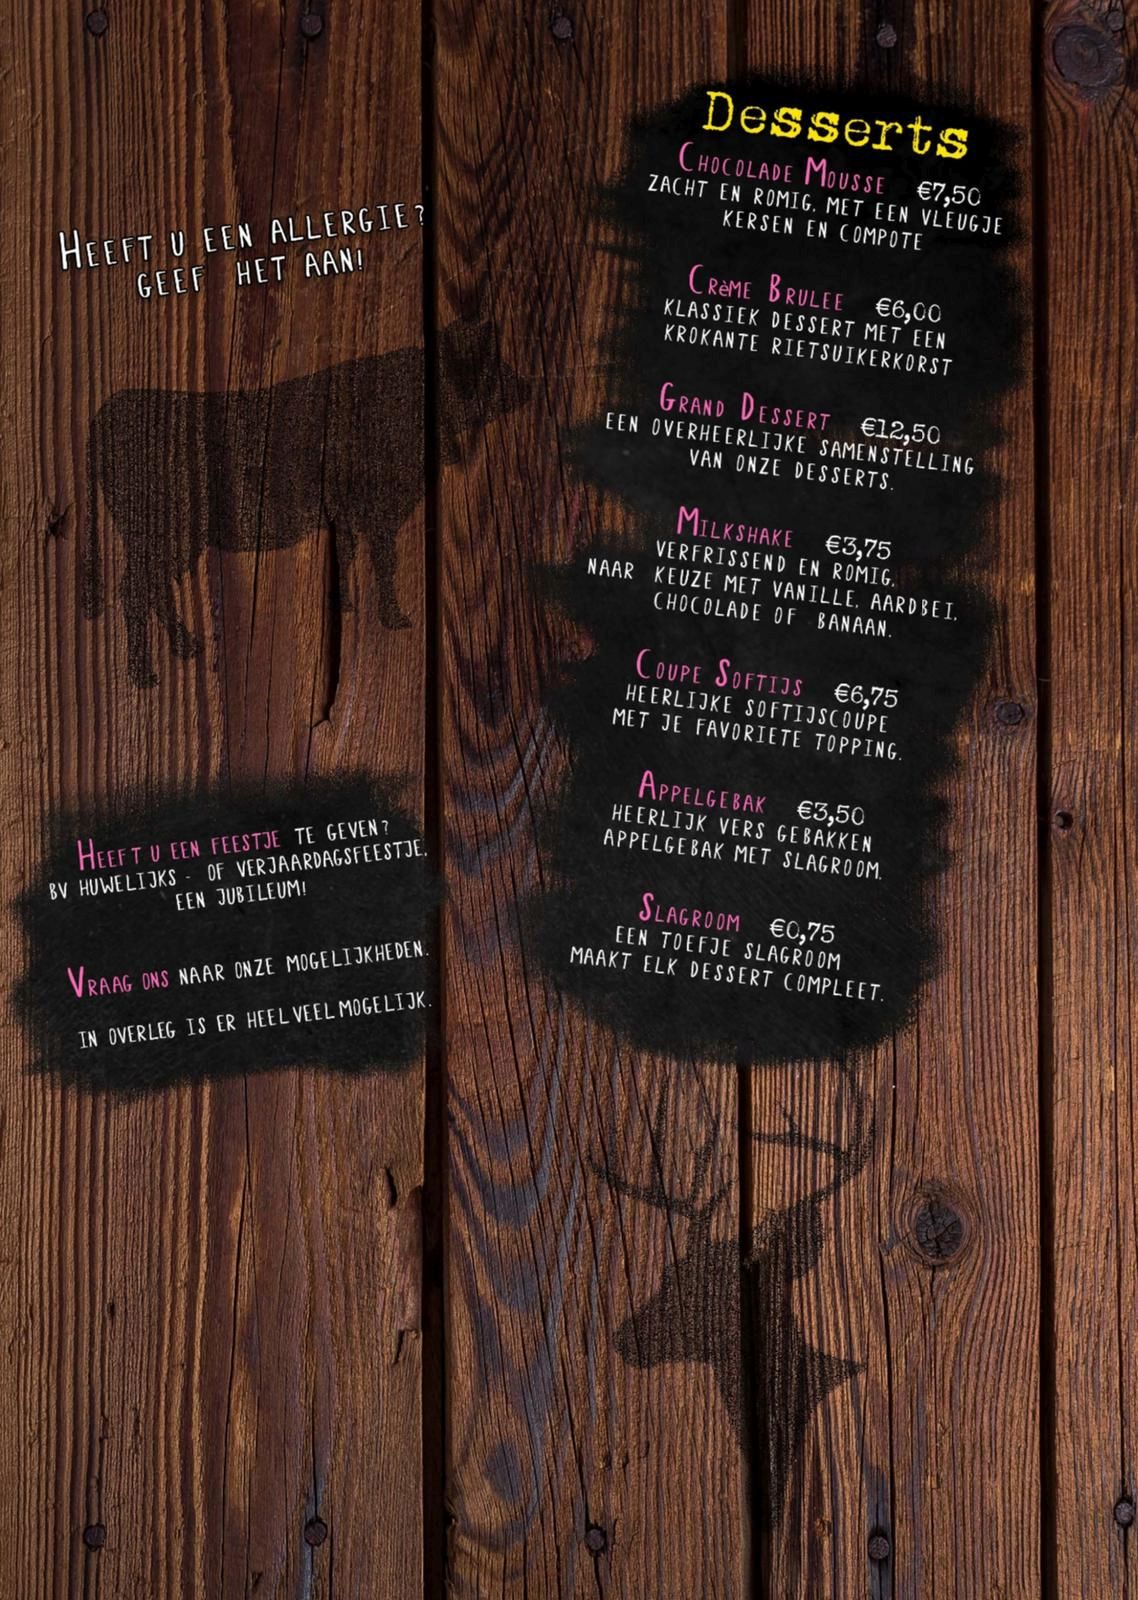 Heeft u een allergie?
geef het aan!
Heeft u een feestje te geven?
bv huwelijks - of verjaardagsfeestje,
een jubileum!
Vraag ons naar onze mogelijkheden.
in overleg is er heel veel mogelijk.
Desserts
Chocolade Mousse €7,50
zacht en romig, met een vleugje
kersen en compote
Crème Brulee €6,00
klassiek dessert met een
krokante rietsuikerkorst
Grand Dessert €12,50
een overheerlijke samenstelling
van onze desserts.
Milkshake €3,75
verfrissend en romig,
naar keuze met vanille, aardbei,
chocolade of banaan.
Coupe Softijs €6,75
heerlijke softijscoupe
met je favoriete topping.
Appelgebak €3,50
heerlijk vers gebakken
appelgebak met slagroom.
Slagroom €0,75
een toefje slagroom
maakt elk dessert compleet.